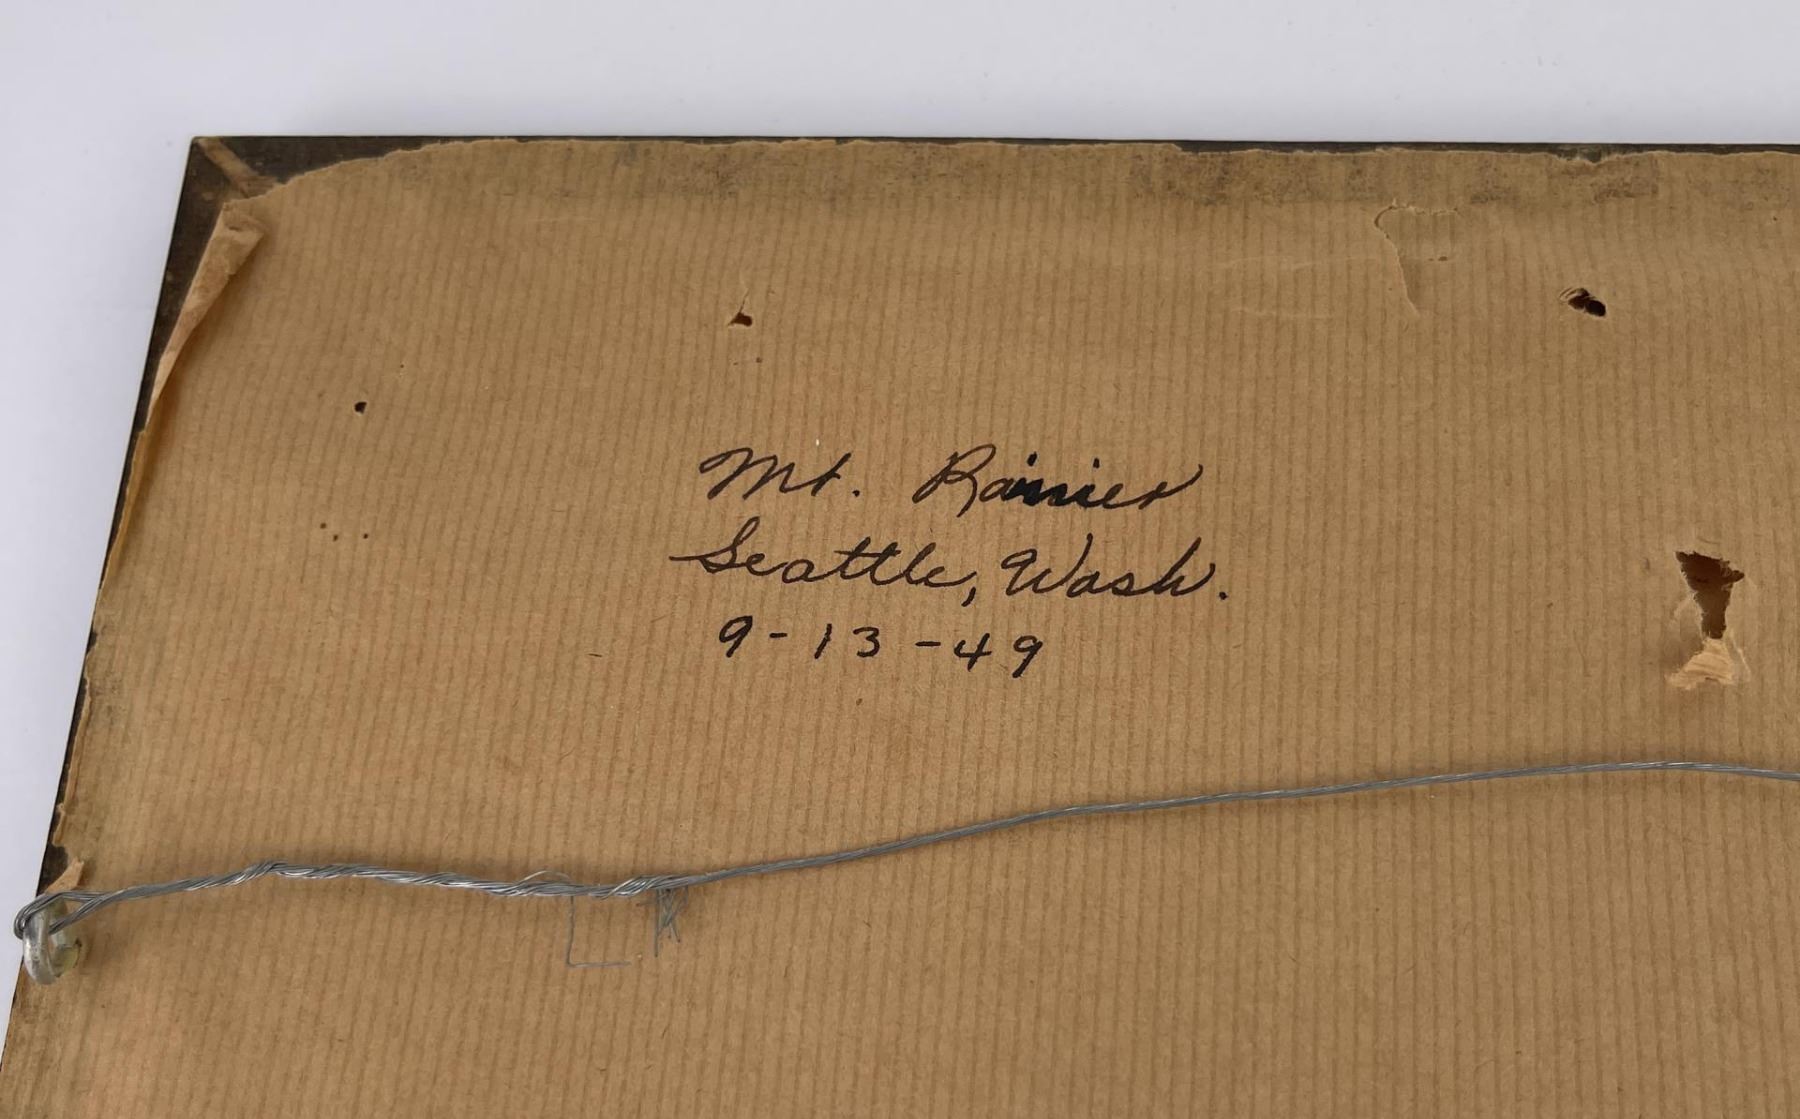 Mt. Rainier
Seattle, Wash.
9-13-49